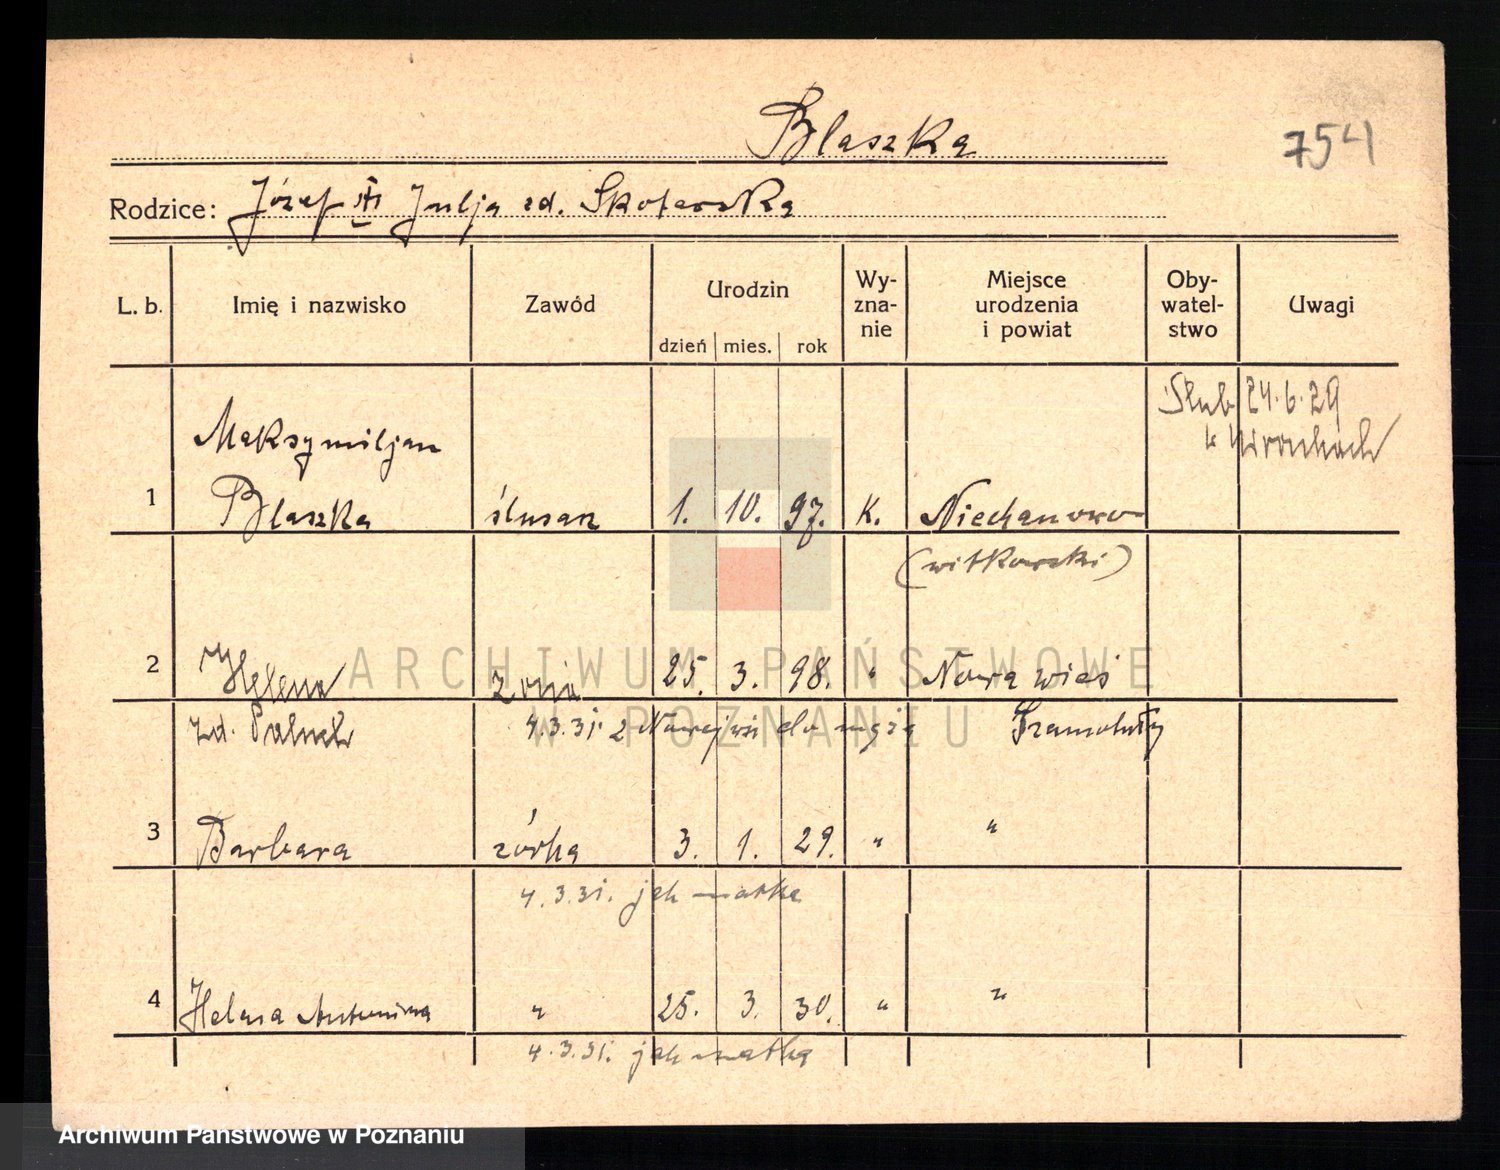 Blaszka
754
Rodzice: Józef Julja zd. Skotarska
L. b. Imię i nazwisko Zawód Urodzin dzień mies. rok Wy-zna-nie Miejsce urodzenia i powiat Oby-watel-stwo Uwagi
Ślub 24.6.29
Maksymiljan
1 Blaszka ślusarz 1. 10. 97. K. Niechanowo
(witkowski)
2 Helena żona 25. 3. 98. " Nowa wieś
zd. 4.3.31. z Nowejwsi do męża Szamotuły
3 Barbara córka 3. 1. 29. " "
4.3.31. jak matka
4 Helena Antonina " 25. 3. 30. " "
4.3.31. jak matka
ARCHIWUM PAŃSTWOWE
W POZNANIU
Archiwum Państwowe w Poznaniu